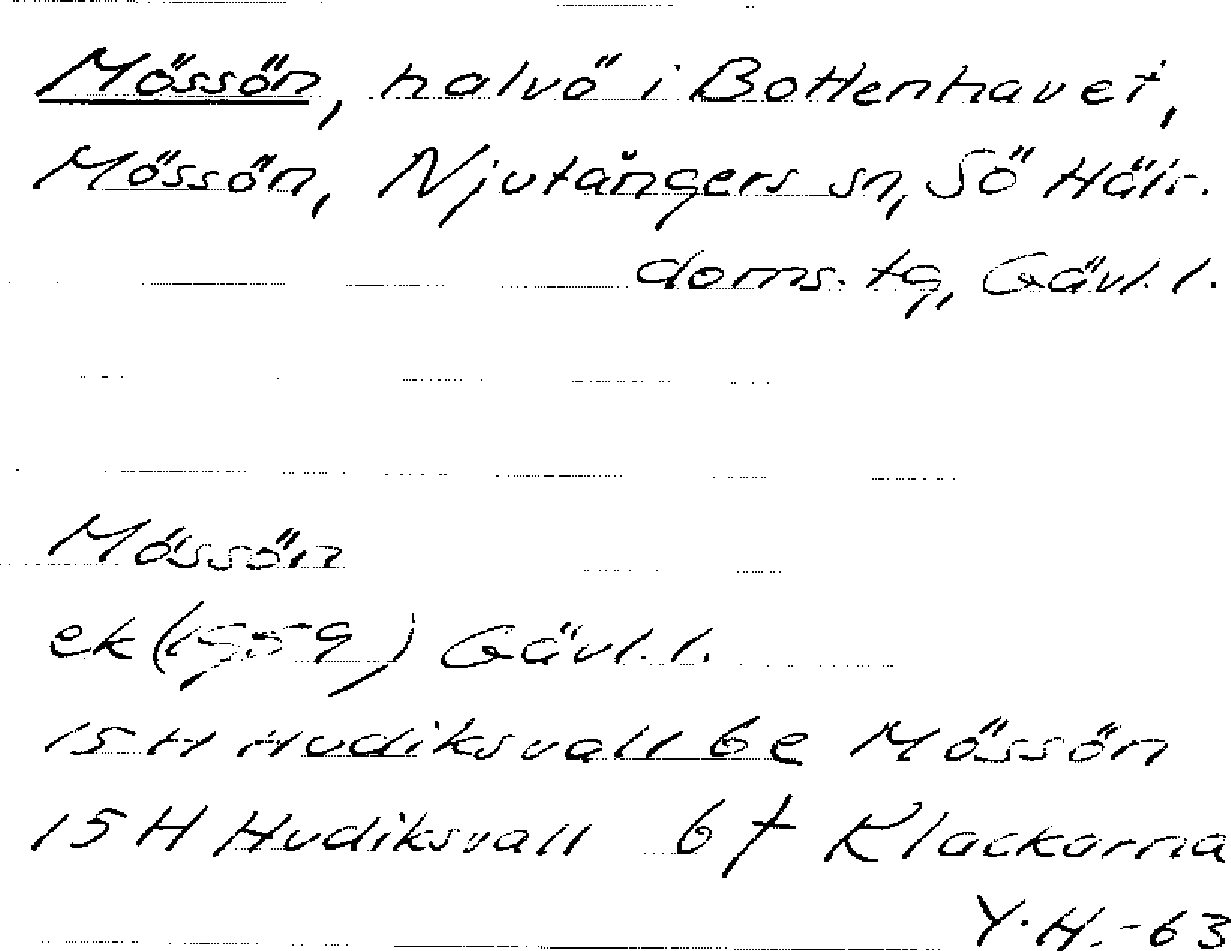 Mössön, halvö i Bottenhavet,
Mössön, Njutångers sn, Sö Häls.
doms. tg, Gävl. l.
Mössön
ek (1959) Gävl. l.
15 H Hudiksvall 6e Mössön
15 H Hudiksvall 6f Klackarna
Y. H. -63